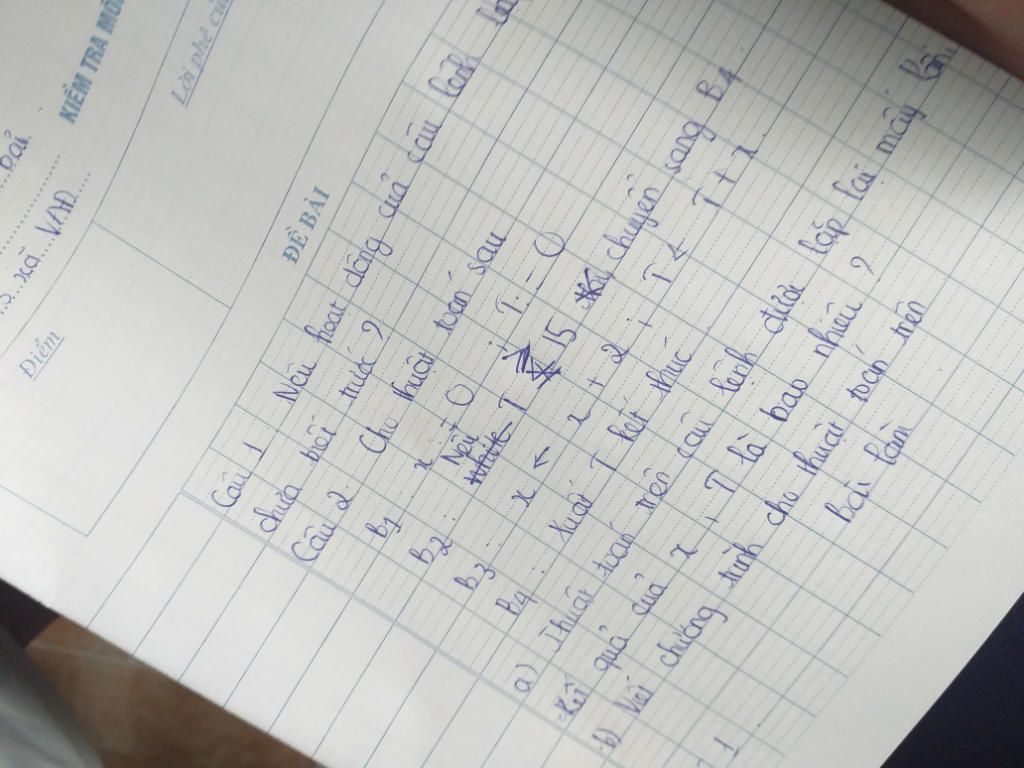 bả
xã VAĐ
KIỂM TRA MÔN
Điểm
Lời phê củ
ĐỀ BÀI
Câu 1 Nêu hoạt động của câu lệnh
chưa biết trước ?
Câu 2 Cho thuật toán sau
B1 x = 0 ; T = 0
B2 : Nếu T ≥ 15 chuyển sang B4
B3 : x ← x + 2 ; T ← T + x
B4 : Xuất T kết thúc
a) Thuật toán trên câu lệnh được lặp lại mấy lần
. Kết quả của x , T là bao nhiêu ?
b) Viết chương trình cho thuật toán trên
Bài làm
1